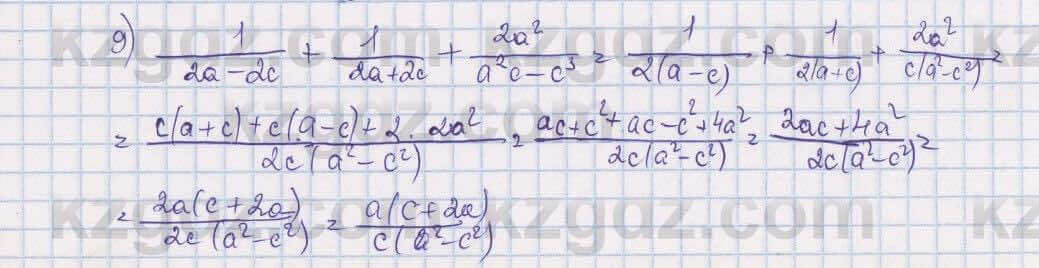 9) \frac{1}{2a-2c} + \frac{1}{2a+2c} + \frac{2a^2}{a^2c-c^3} = \frac{1}{2(a-c)} + \frac{1}{2(a+c)} + \frac{2a^2}{c(a^2-c^2)} =
= \frac{c(a+c)+c(a-c)+2\cdot 2a^2}{2c(a^2-c^2)} = \frac{ac+c^2+ac-c^2+4a^2}{2c(a^2-c^2)} = \frac{2ac+4a^2}{2c(a^2-c^2)} =
= \frac{2a(c+2a)}{2c(a^2-c^2)} = \frac{a(c+2a)}{c(a^2-c^2)}
kzgdz.com